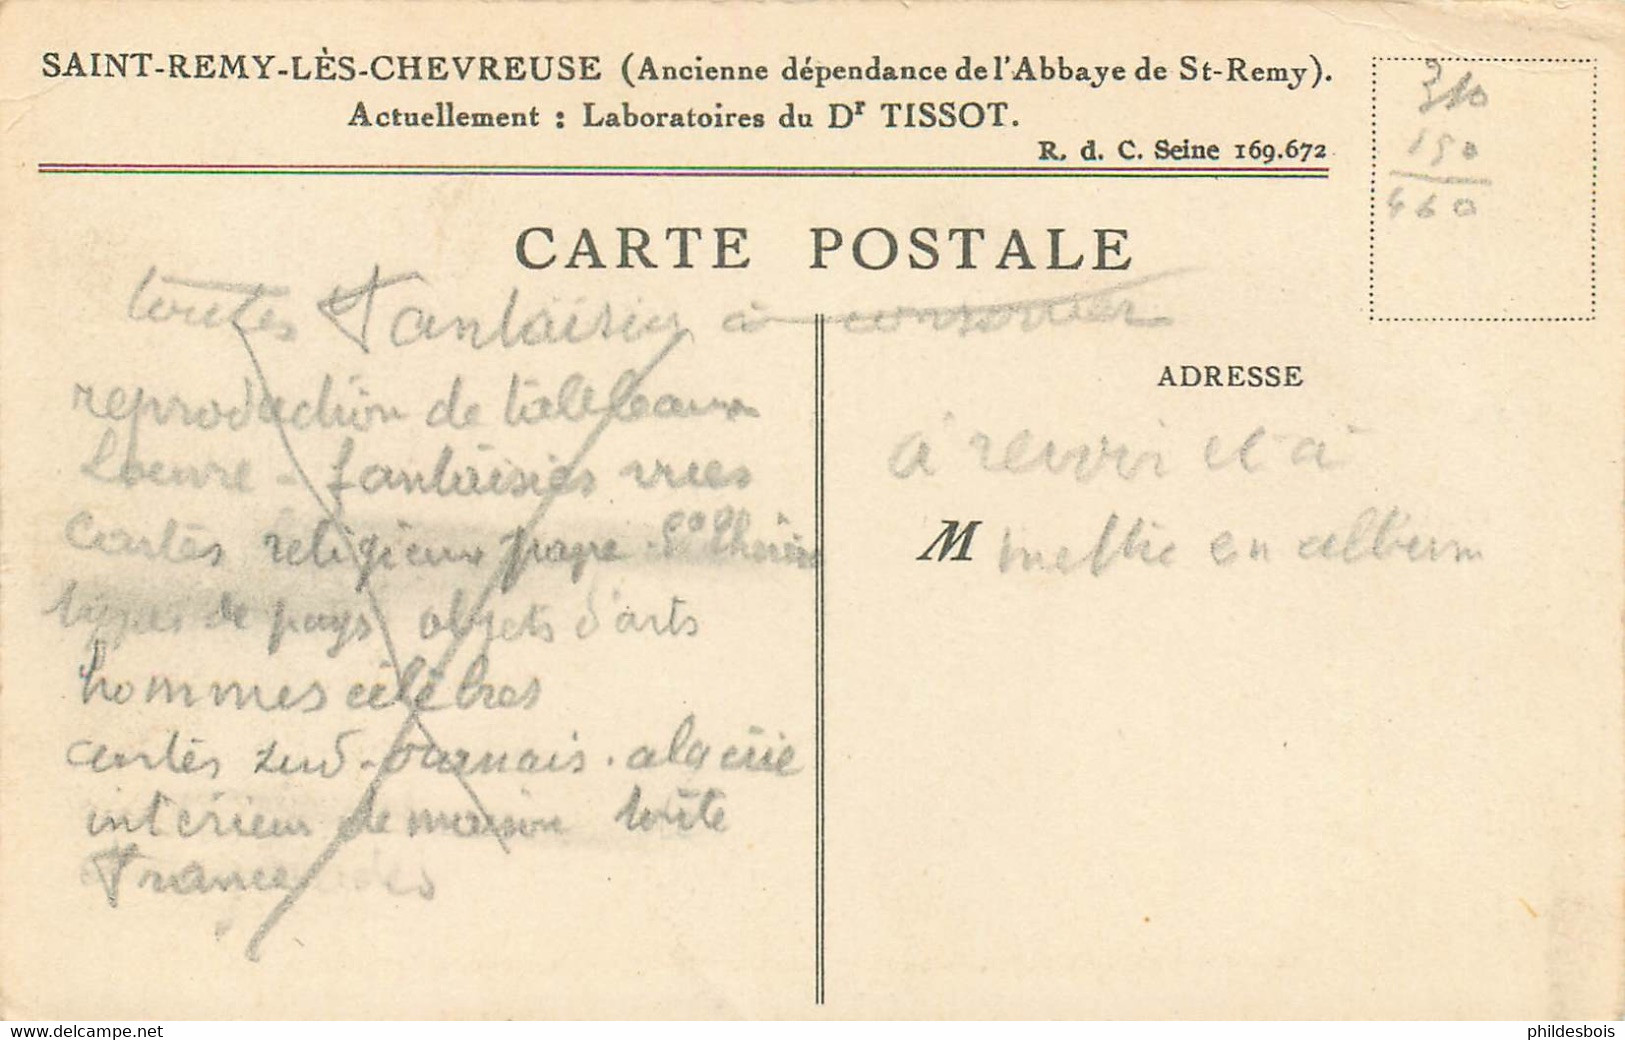 SAINT-REMY-LÈS-CHEVREUSE (Ancienne dépendance de l'Abbaye de St-Remy).
Actuellement : Laboratoires du Dr TISSOT.
R. d. C. Seine 169.672
310
150
460
CARTE POSTALE
toutes Fantaisies à
reproduction de tableaux
Louvre - fantaisies vues
cartes religieux pape
types de pays objets d'arts
hommes célèbres
cartes
intérieur de maison toute
France
ADRESSE
à revoir et à
M mettre en album
www.delcampe.net
phildesbois